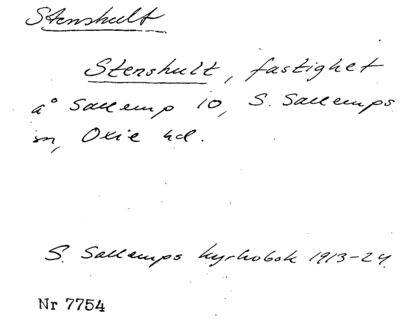 Stenshult
Stenshult, fastighet
å Sallerup 10, S. Sallerups
sn, Oxie hd.
S. Sallerups kyrkobok 1913-24.
Nr 7754